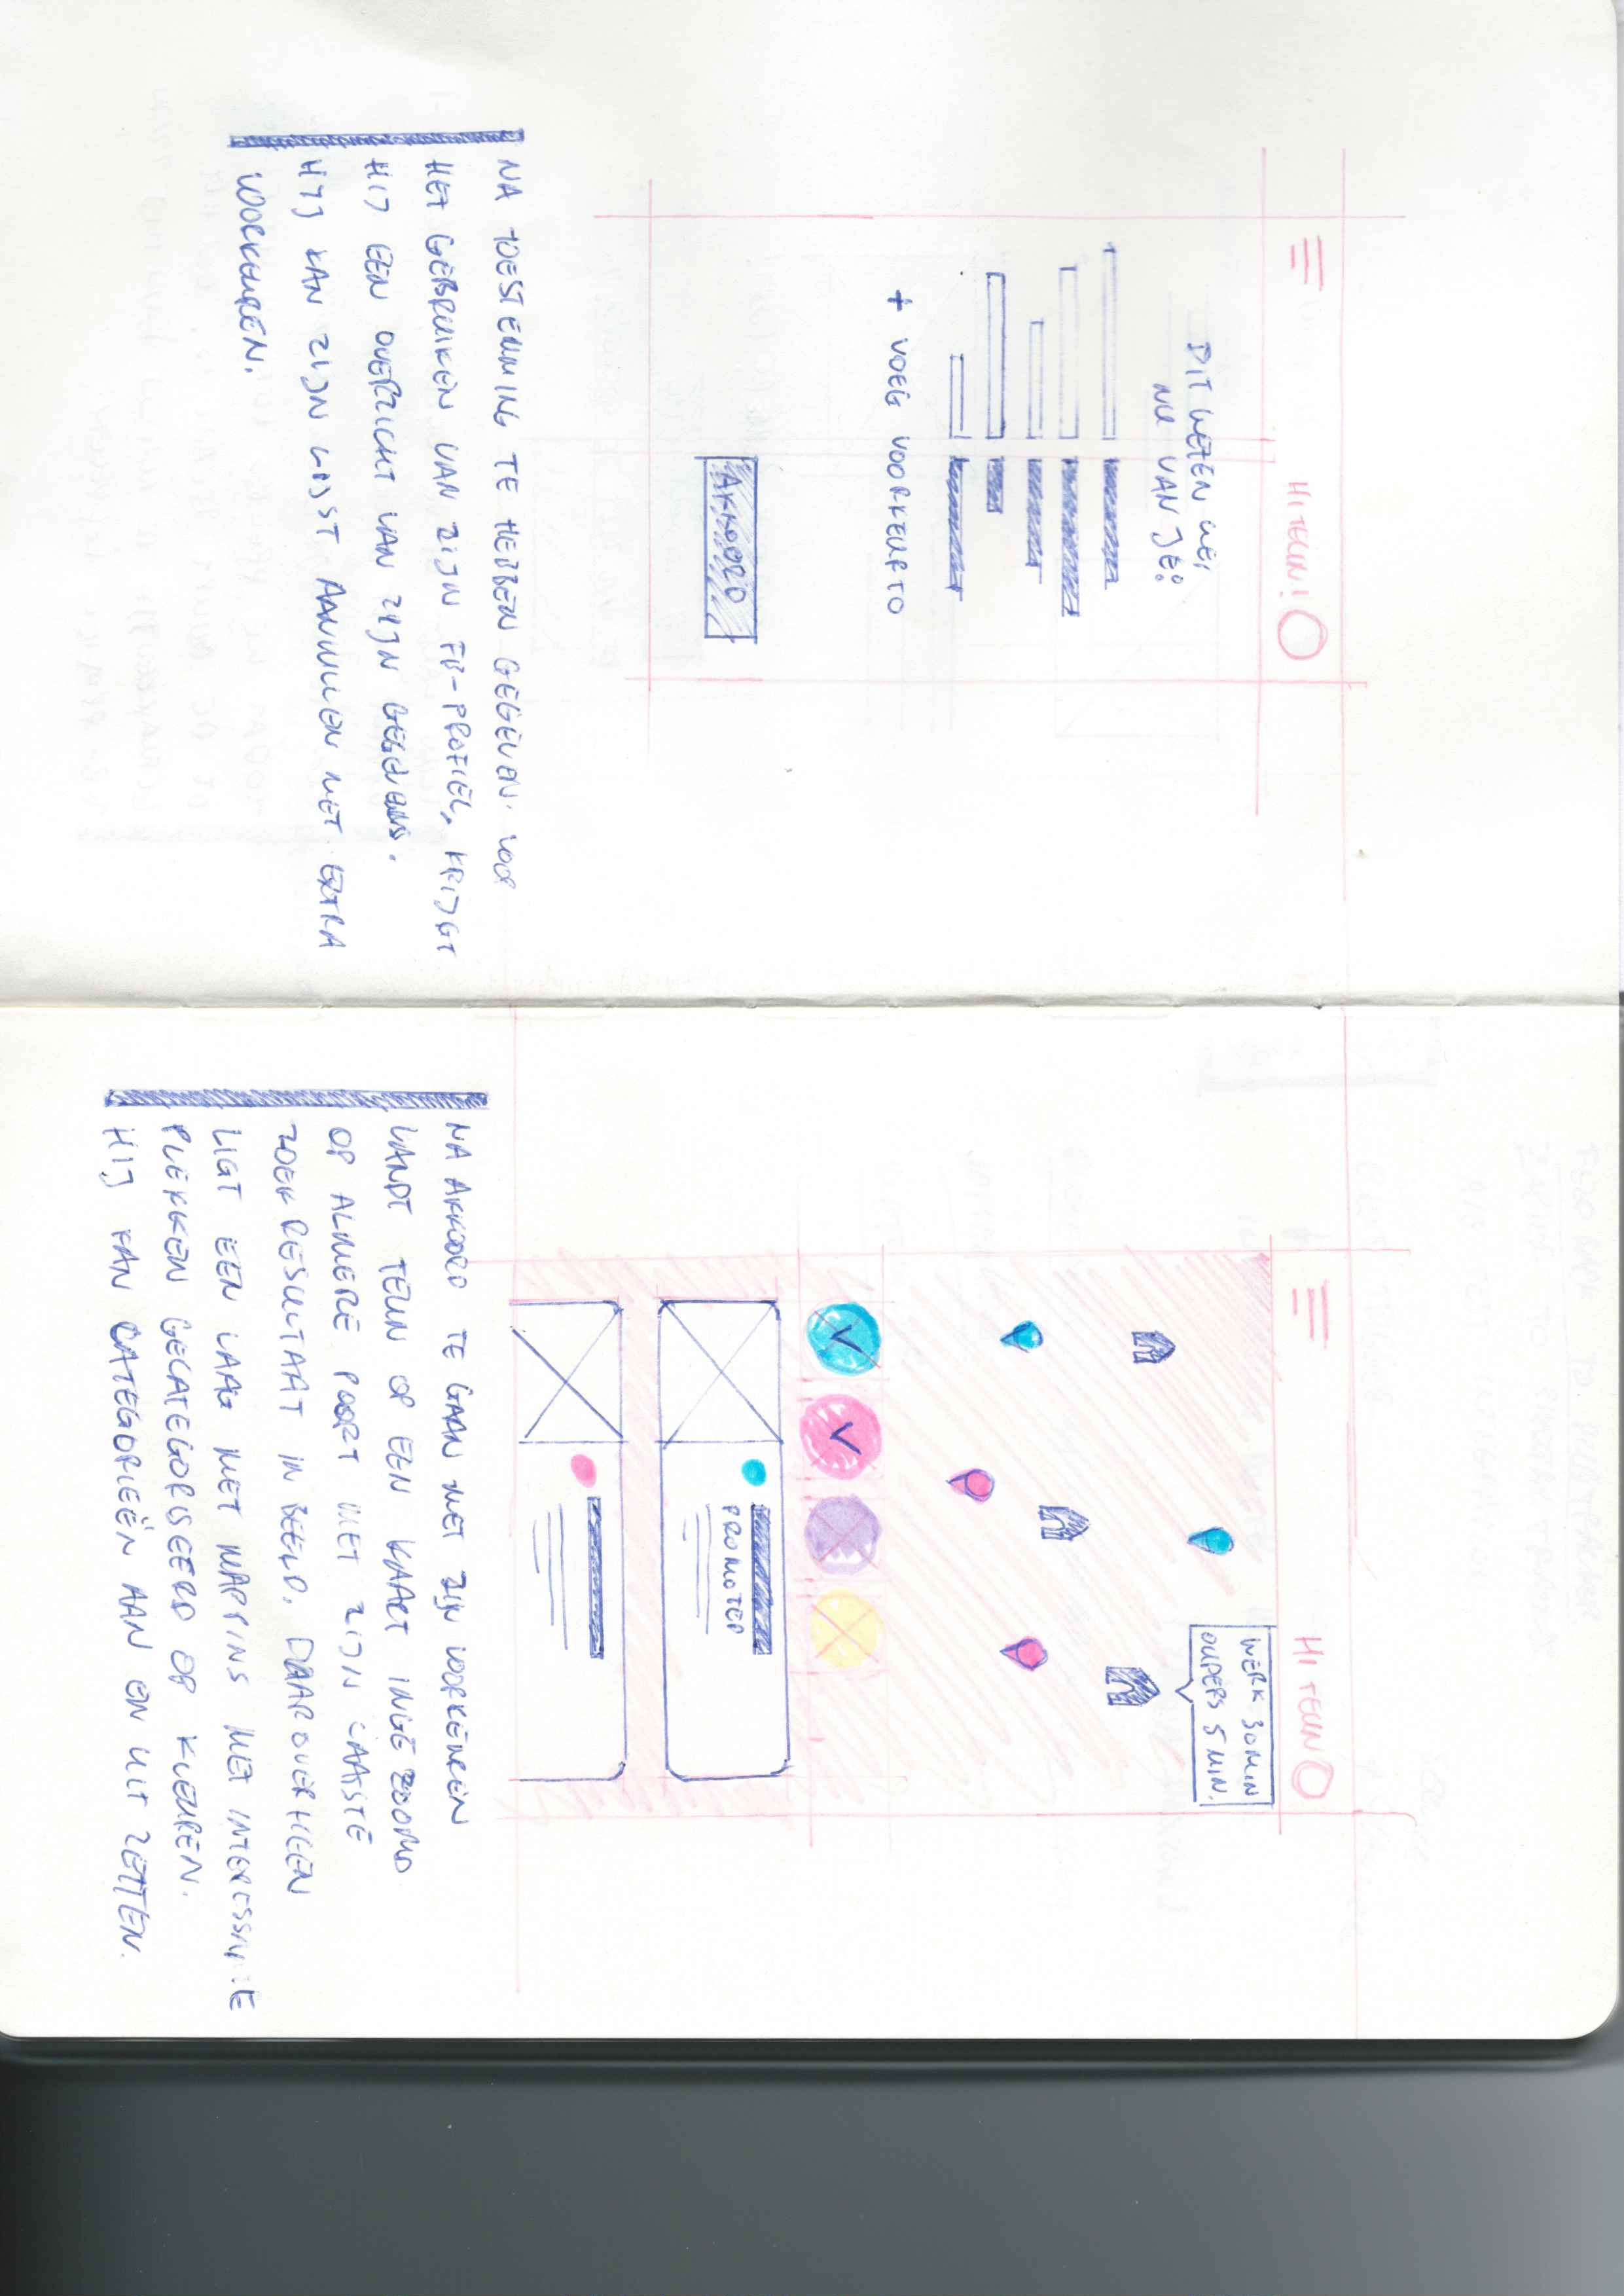 HI TEUN!
DIT WETEN WE
NU VAN JE:
+ VOEG VOORKEUR TO
AKKOORD
NA TOESTEMMING TE HEBBEN GEGEVEN VOOR
HET GEBRUIKEN VAN ZIJN FB-PROFIEL, KRIJGT
HIJ EEN OVERZICHT VAN ZIJN GEGEVENS.
HIJ KAN ZIJN LIJST AANVULLEN MET EXTRA
VOORKEUREN.
HI TEUN
WERK 30 MIN
OUDERS 5 MIN.
PROMOTED
NA AKKOORD TE GAAN MET ZIJN VOORKEUREN
LANDT TEUN OP EEN KAART INGEZOOMD
OP ALMERE POORT MET ZIJN LAATSTE
ZOEKRESULTAAT IN BEELD. DAAROVERHEEN
LIGT EEN LAAG MET MAPPINS MET INTERESSANTE
PLEKKEN GECATEGORISEERD OP KLEUREN.
HIJ KAN CATEGORIEËN AAN EN UIT ZETTEN.